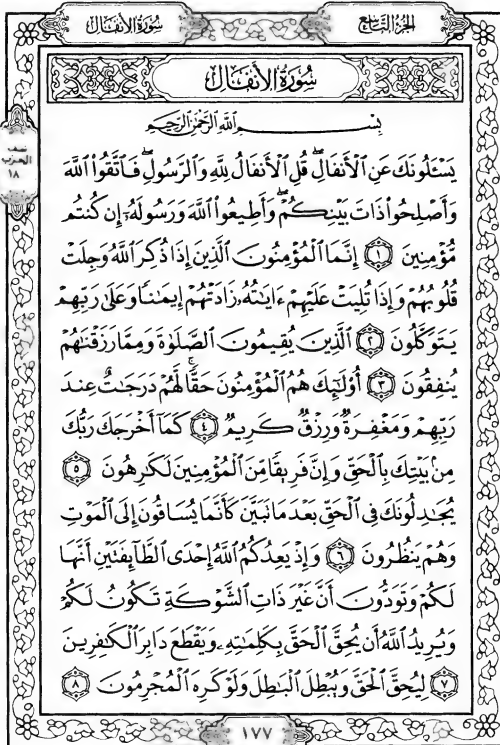 سُورَةُ الأَنفَالِ
الجُزْءُ التَّاسِعُ
سُورَةُ الأَنفَالِ
نصف
الحزب
١٨
بِسْمِ ٱللَّهِ ٱلرَّحْمَٰنِ ٱلرَّحِيمِ
يَسْـَٔلُونَكَ عَنِ ٱلْأَنفَالِ ۖ قُلِ ٱلْأَنفَالُ لِلَّهِ وَٱلرَّسُولِ ۖ فَٱتَّقُوا۟ ٱللَّهَ
وَأَصْلِحُوا۟ ذَاتَ بَيْنِكُمْ ۖ وَأَطِيعُوا۟ ٱللَّهَ وَرَسُولَهُۥٓ إِن كُنتُم
مُّؤْمِنِينَ ١ إِنَّمَا ٱلْمُؤْمِنُونَ ٱلَّذِينَ إِذَا ذُكِرَ ٱللَّهُ وَجِلَتْ
قُلُوبُهُمْ وَإِذَا تُلِيَتْ عَلَيْهِمْ ءَايَٰتُهُۥ زَادَتْهُمْ إِيمَٰنًا وَعَلَىٰ رَبِّهِمْ
يَتَوَكَّلُونَ ٢ ٱلَّذِينَ يُقِيمُونَ ٱلصَّلَوٰةَ وَمِمَّا رَزَقْنَٰهُمْ
يُنفِقُونَ ٣ أُو۟لَٰٓئِكَ هُمُ ٱلْمُؤْمِنُونَ حَقًّا ۚ لَّهُمْ دَرَجَٰتٌ عِندَ
رَبِّهِمْ وَمَغْفِرَةٌ وَرِزْقٌ كَرِيمٌ ٤ كَمَآ أَخْرَجَكَ رَبُّكَ
مِنۢ بَيْتِكَ بِٱلْحَقِّ وَإِنَّ فَرِيقًا مِّنَ ٱلْمُؤْمِنِينَ لَكَٰرِهُونَ ٥
يُجَٰدِلُونَكَ فِى ٱلْحَقِّ بَعْدَ مَا تَبَيَّنَ كَأَنَّمَا يُسَاقُونَ إِلَى ٱلْمَوْتِ
وَهُمْ يَنظُرُونَ ٦ وَإِذْ يَعِدُكُمُ ٱللَّهُ إِحْدَى ٱلطَّآئِفَتَيْنِ أَنَّهَا
لَكُمْ وَتَوَدُّونَ أَنَّ غَيْرَ ذَاتِ ٱلشَّوْكَةِ تَكُونُ لَكُمْ
وَيُرِيدُ ٱللَّهُ أَن يُحِقَّ ٱلْحَقَّ بِكَلِمَٰتِهِۦ وَيَقْطَعَ دَابِرَ ٱلْكَٰفِرِينَ
٧ لِيُحِقَّ ٱلْحَقَّ وَيُبْطِلَ ٱلْبَٰطِلَ وَلَوْ كَرِهَ ٱلْمُجْرِمُونَ ٨
١٧٧